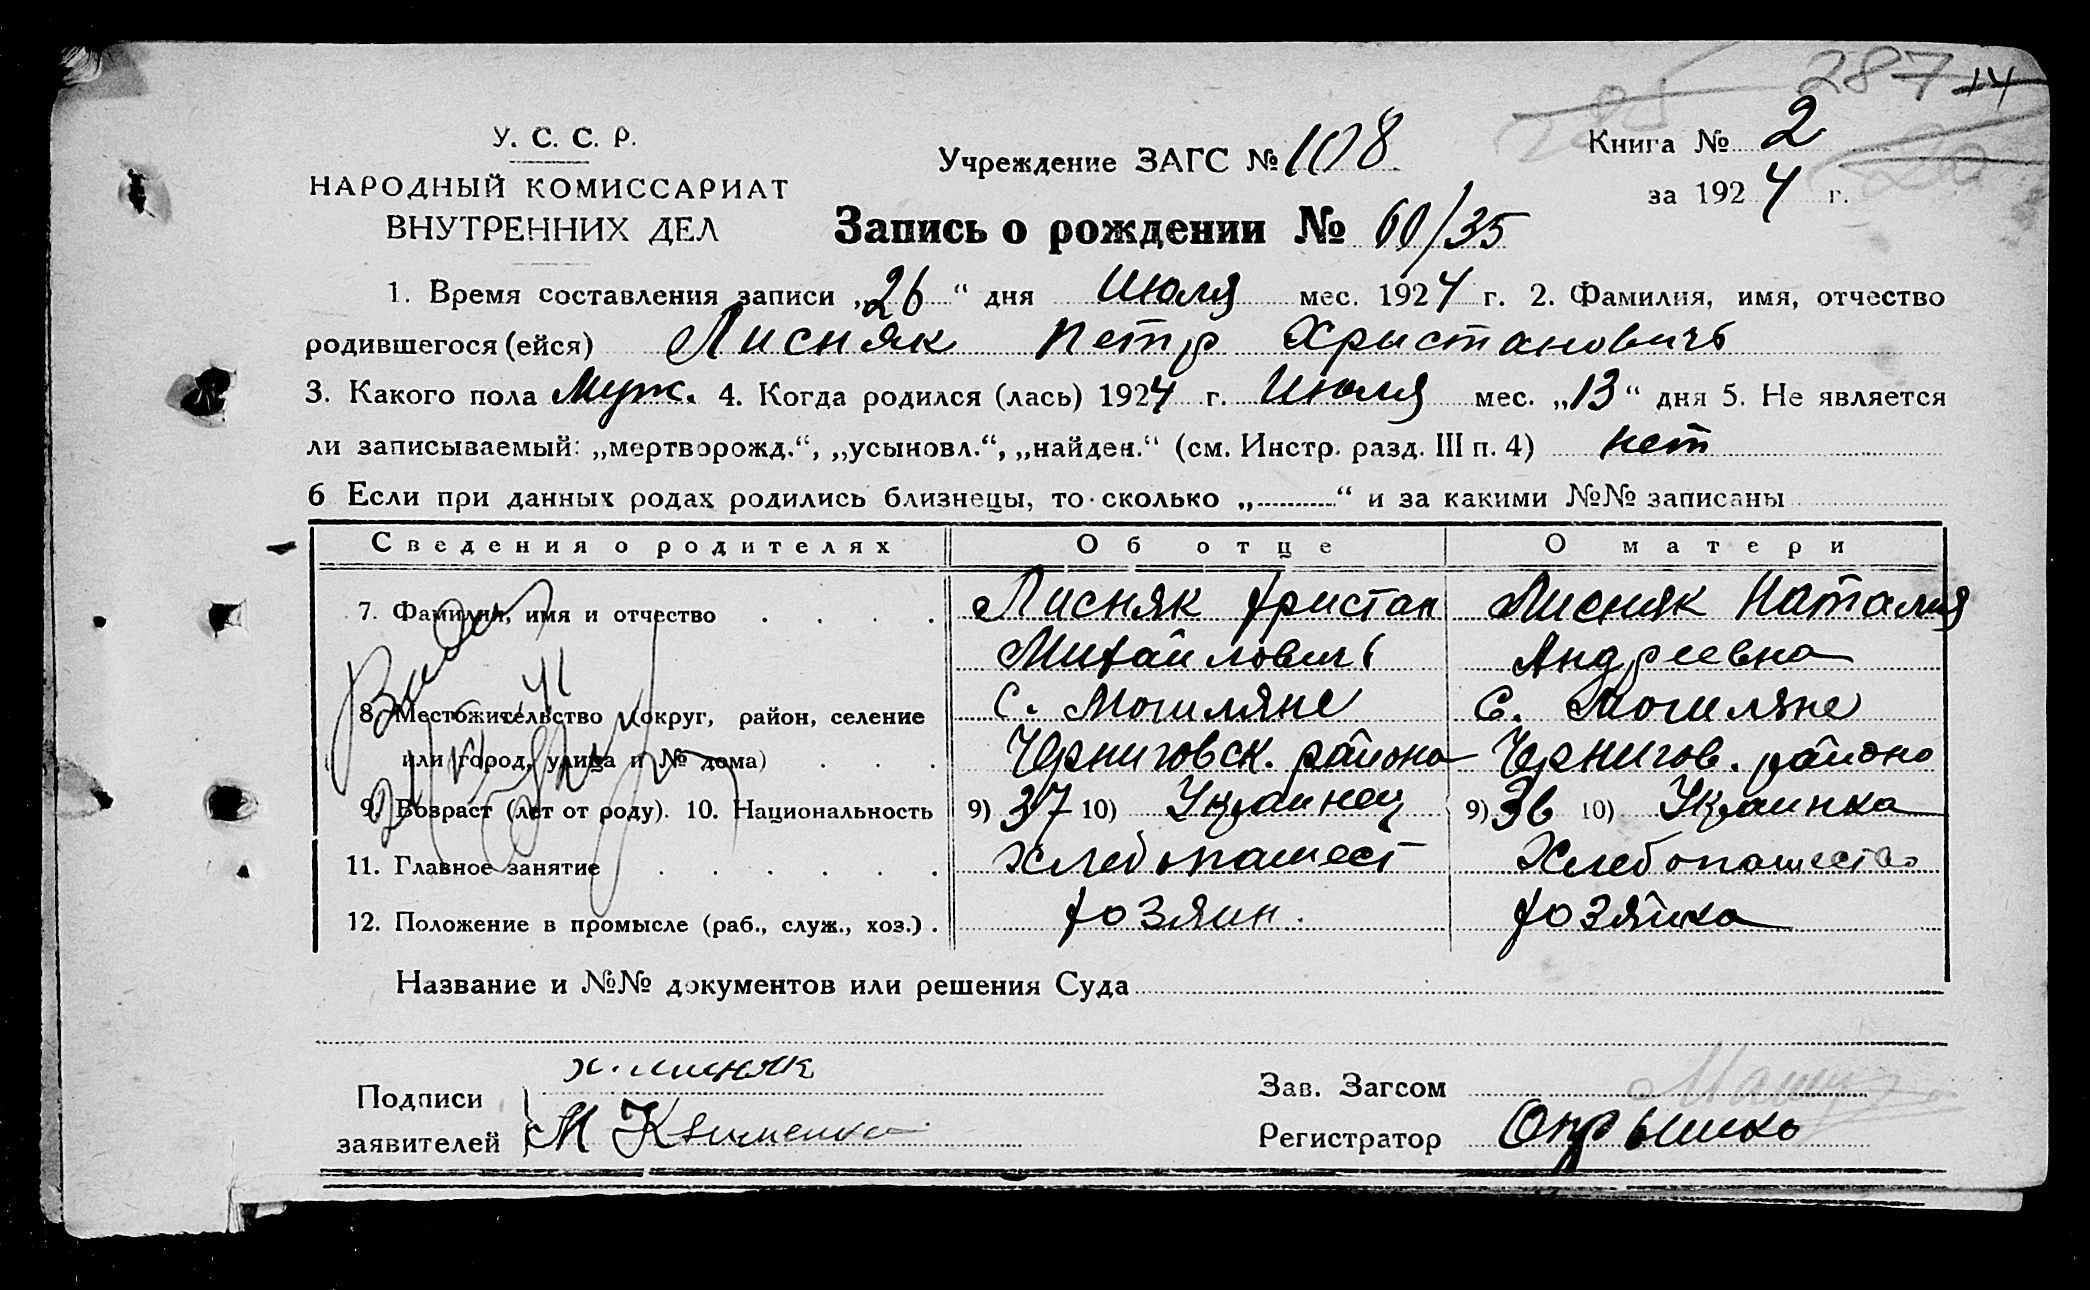 287 14
285
У. С. С. Р.
НАРОДНЫЙ КОМИССАРИАТ
ВНУТРЕННИХ ДЕЛ
Учреждение ЗАГС № 108
Книга № 2
за 1924 г.
Запись о рождении № 60/35
1. Время составления записи „26“ дня Июля мес. 1924 г. 2. Фамилия, имя, отчество
родившегося (ейся) Лисняк Петр Христановичъ
3. Какого пола Муж. 4. Когда родился (лась) 1924 г. Июля мес. „13“ дня 5. Не является
ли записываемый: „мертворожд.“, „усыновл.“, „найден.“ (см. Инстр. разд. III п. 4) нет
6 Если при данных родах родились близнецы, то сколько „..........“ и за какими №№ записаны
Сведения о родителях Об отце О матери
7. Фамилия, имя и отчество . . . . Лисняк Христан Лисняк Наталия
Михайловичъ Андреевна
8. Местожительство (округ, район, селение С. Могиляне С. Могиляне
или город, улица и № дома) . . . Черниговск. района Чернигов. района
9. Возраст (лет от роду). 10. Национальность 9) 37 10) Украинец 9) 36 10) Украинка
11. Главное занятие . . . . . . Хлебопашест Хлебопашество
12. Положение в промысле (раб., служ., хоз.) . Хозяин. Хозяйка
Название и №№ документов или решения Суда
Подписи Х. лисняк
заявителей М Клименко
Зав. Загсом
Регистратор Опрышко